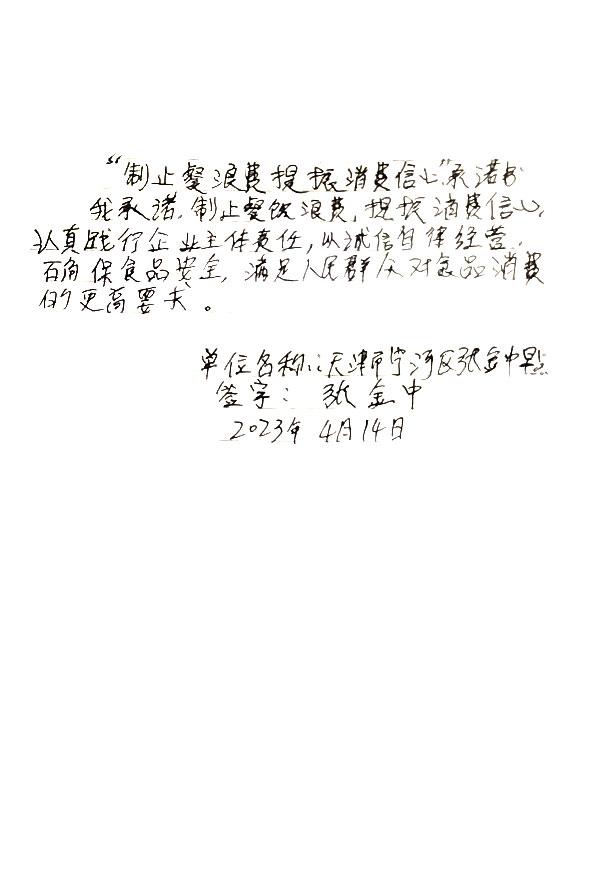 “制止餐浪费提振消费信心”承诺书
我承诺,制止餐饮浪费,提振消费信心,
认真践行企业主体责任,以诚信自律经营,
确保食品安全,满足人民群众对食品消费
的更高要求。
单位名称:天津市宁河区张金中早点
签字: 张金中
2023年 4月14日